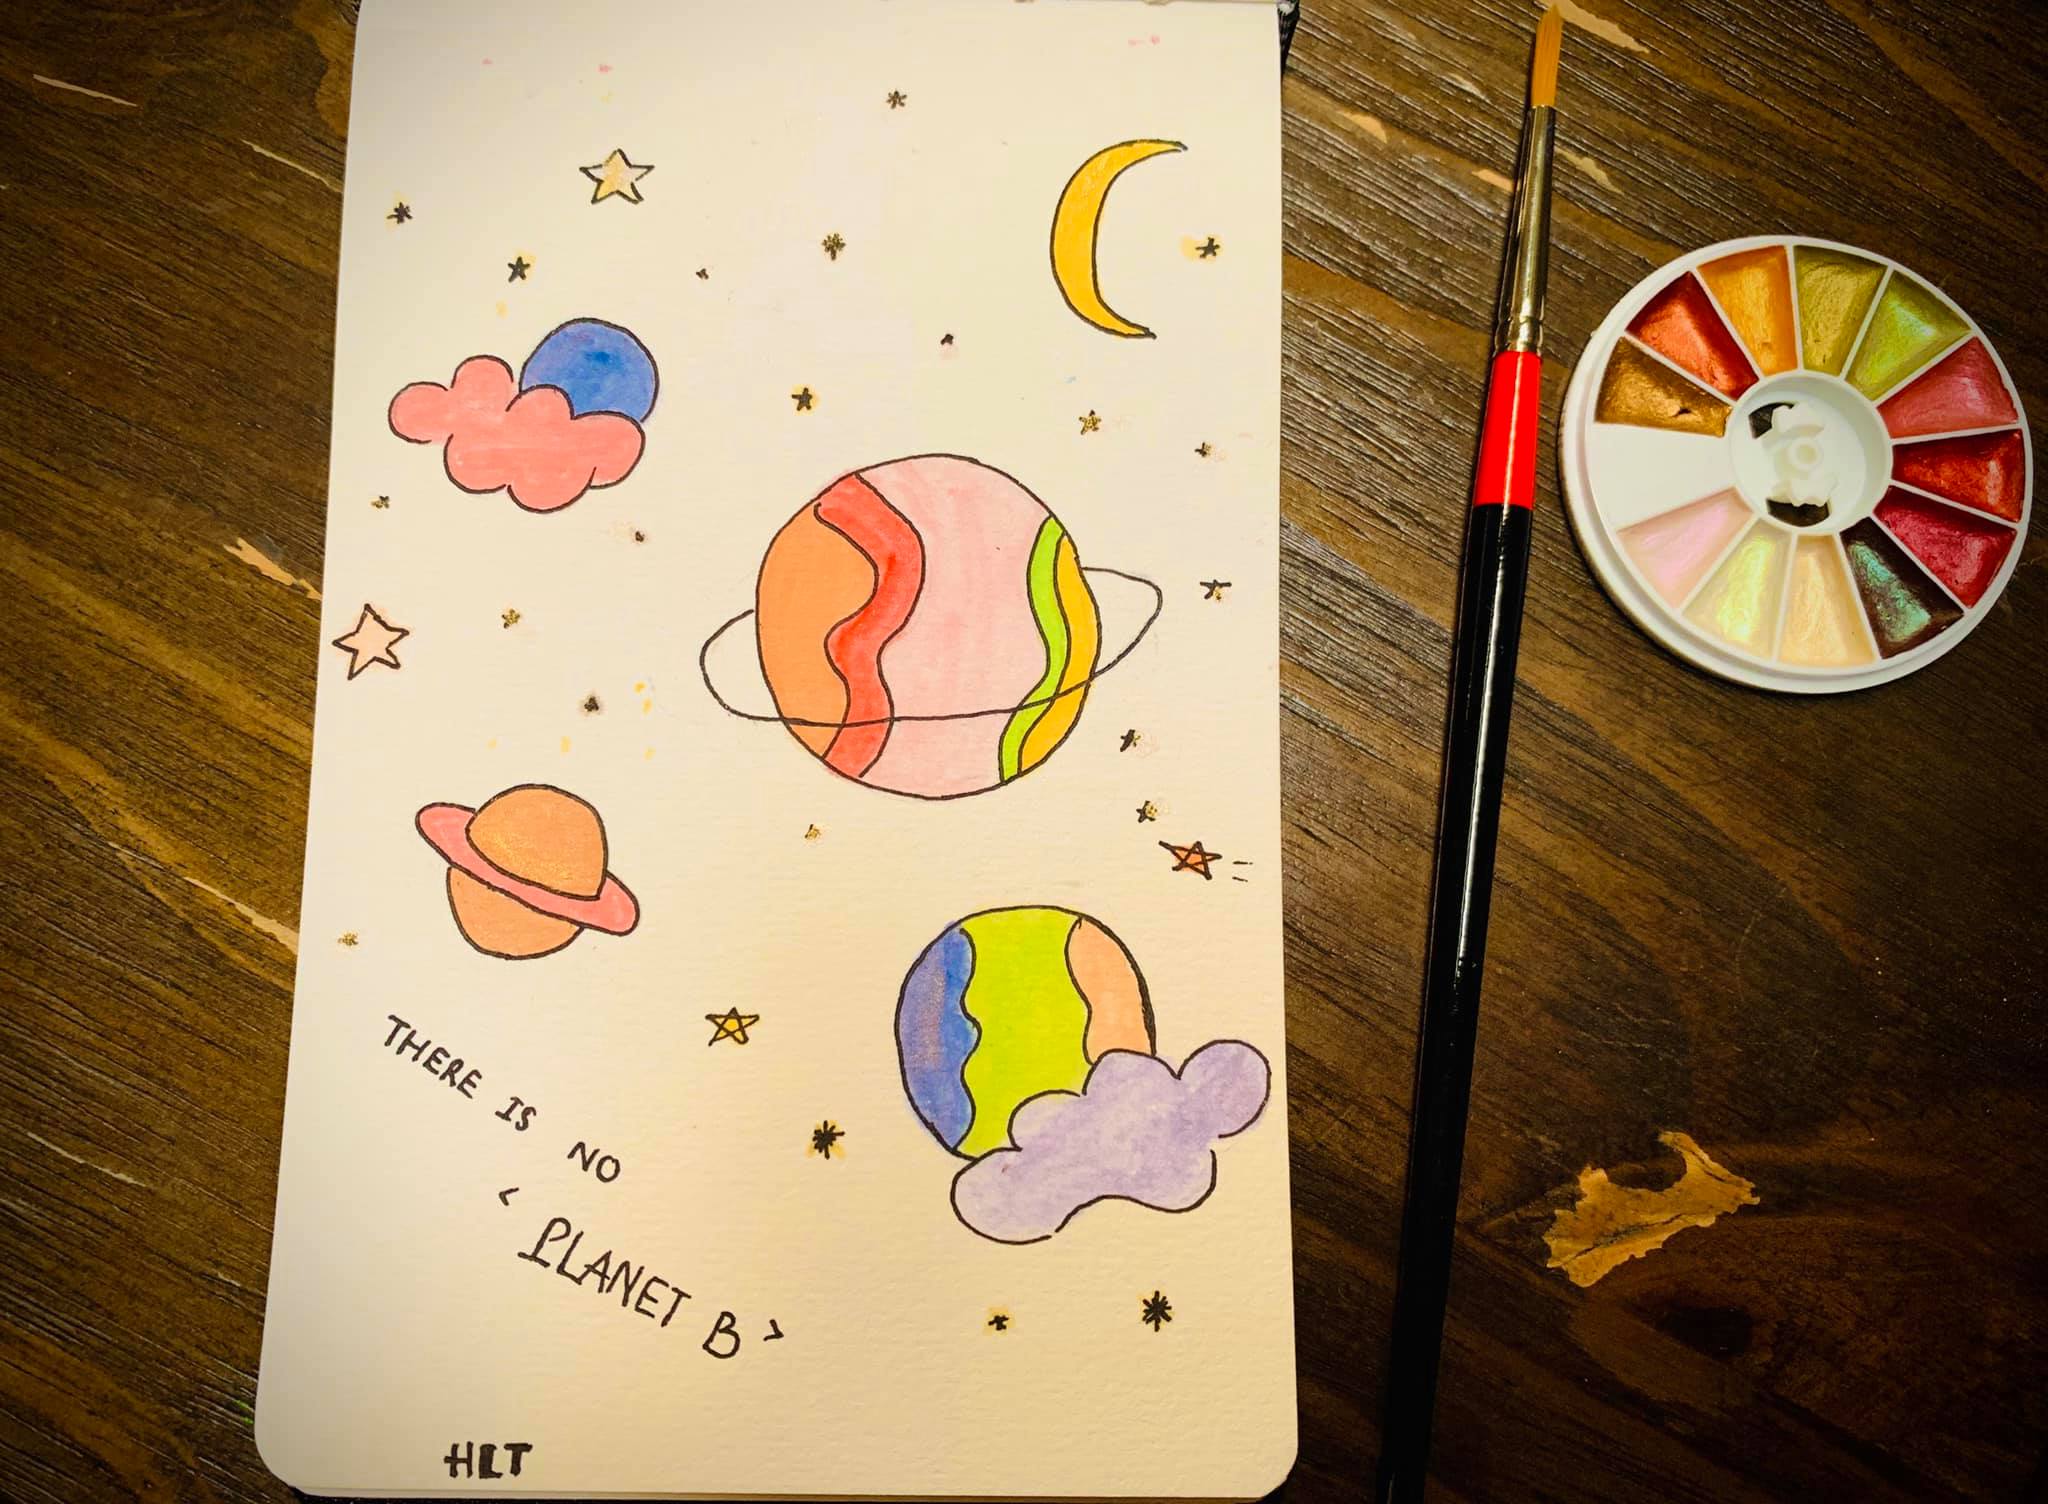 THERE IS NO
< PLANET B >
HLT